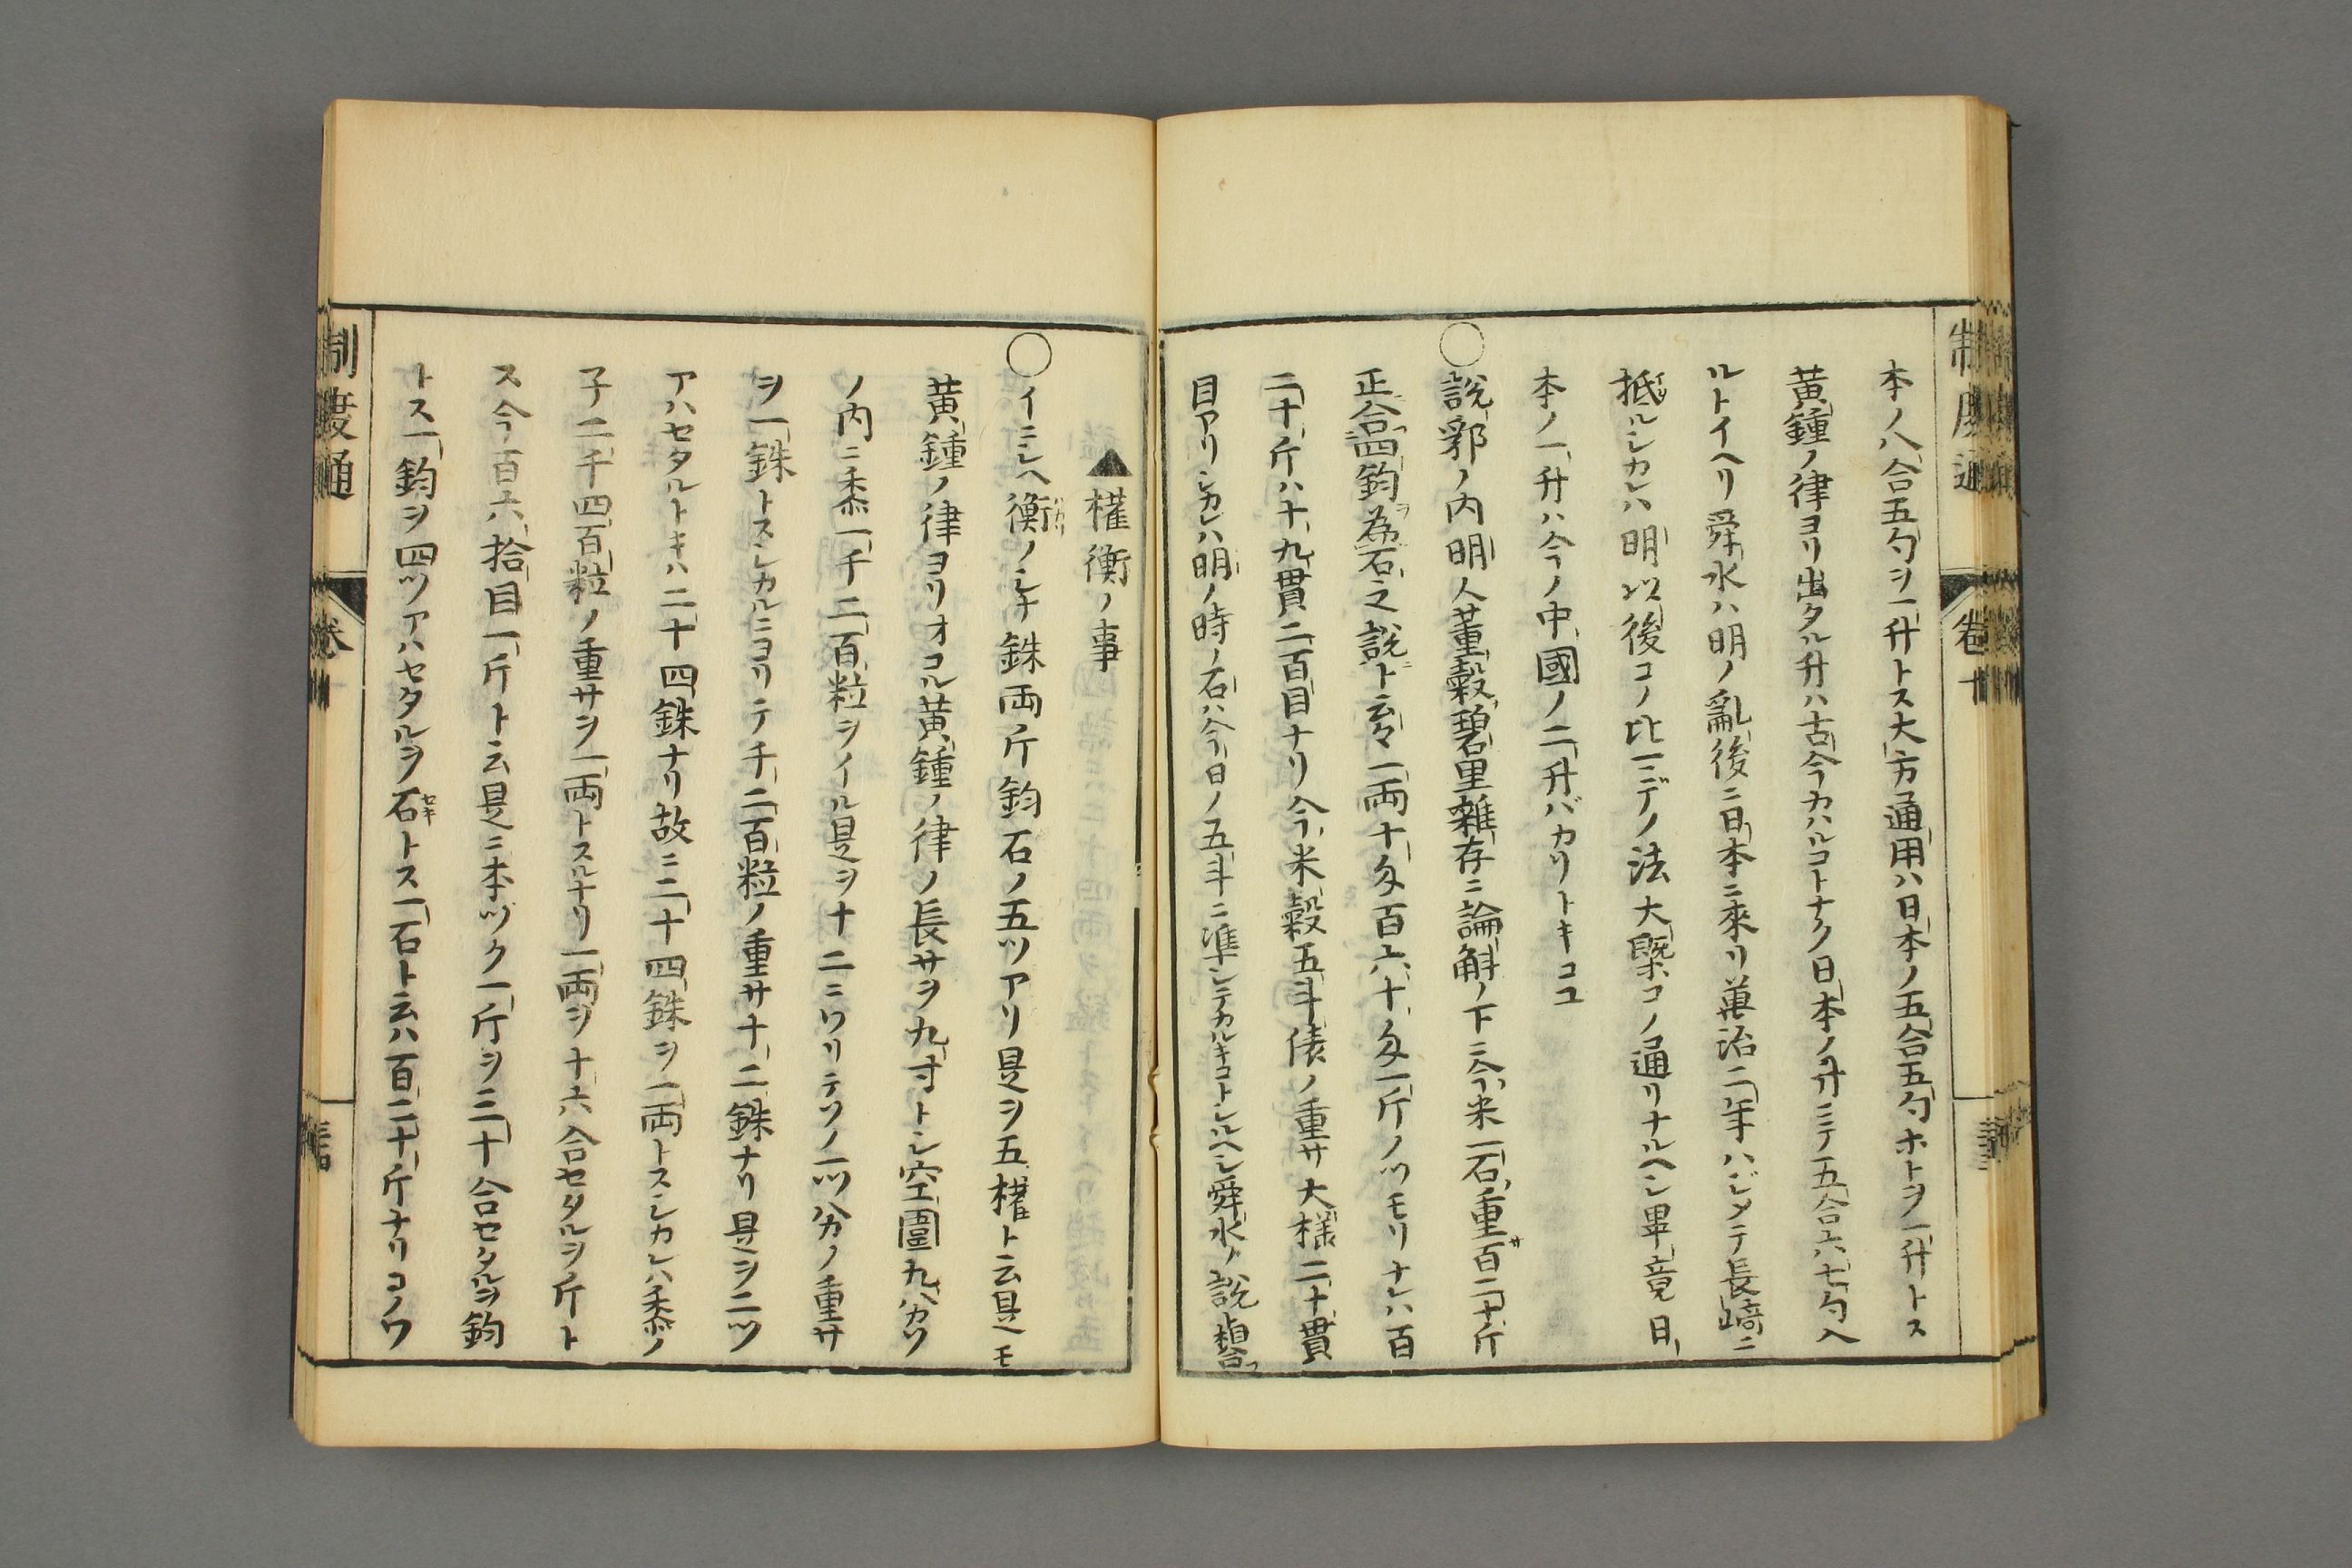 本ノ八合五勺ヲ一升トス大方通用ハ日本ノ五合五勺ホトヲ一升トス
黄鍾ノ律ヨリ出タル升ハ古今カハルコトナク日本ノ升ニテ五合六七勺入
ルトイヘリ舜水ハ明ノ亂後ニ日本ニ來リ萬治二年ハジメテ長﨑ニ
抵ルシカレハ明以後コノ比マデノ法大槩コノ通リナルヘシ畢竟日
本ノ一升ハ今ノ中國ノ二升バカリトキコユ
○說郛ノ内明人董穀碧里雜存ニ論斛ノ下ニ今米一石重サ百二十斤
正合四鈞為石之說ト云々一両十匁百六十匁一斤ノツモリナレハ百
二十斤ハ十九貫二百目ナリ今米穀五斗俵ノ重サ大様二十貫
目アリシカレハ明ノ時ノ石ハ今日ノ五斗ニ準シテカルキコトシルヘシ舜水ノ說
▲權衡ノ事
○イニシヘ衡ノシナ銖両斤鈞石ノ五ツアリ是ヲ五權ト云是モ
黄鍾ノ律ヨリオコル黄鍾ノ律ノ長サヲ九寸トシ空圍九分カツ
ノ内ニ黍一千二百粒ヲイル是ヲ十二ニワリテソノ一ツ分カノ重サ
ヲ一銖トスシカルニヨリテ千二百粒ノ重サ十二銖ナリ是ヲ二ツ
アハセタルトキハ二十四銖ナリ故ニ二十四銖ヲ一両トスシカレハ黍ノ
子二千四百粒ノ重サヲ一両トスルナリ一両ヲ十六合セタルヲ斤ト
ス今百六拾目一斤ト云是ニ本ツク一斤ヲ三十合セタルヲ鈞
トス一鈞ヲ四ツアハセタルヲ石トス一石ト云ハ百二十斤ナリコノワ
制度通
卷十
制度通
卷十